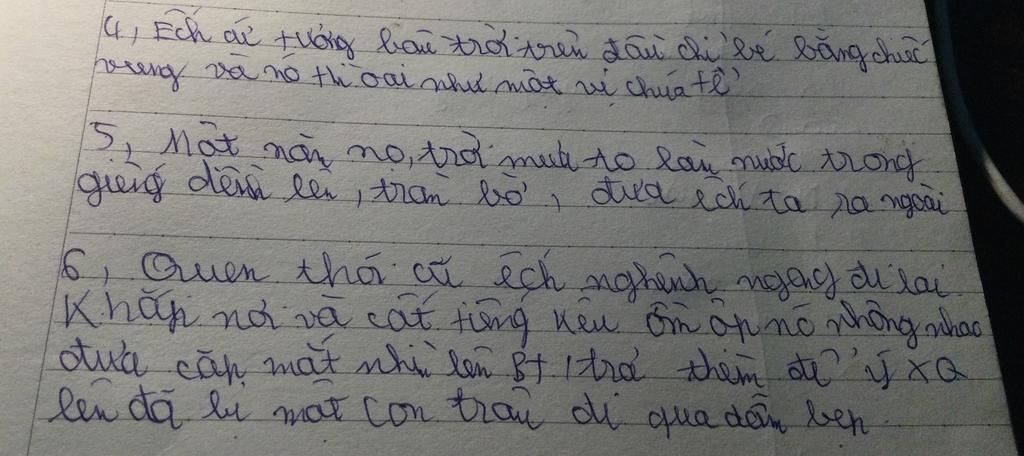 4, Ếch cứ tưởng bầu trời trên đầu chỉ bé bằng chiếc
vung và nó thì oai như một vị chúa tể
5, Một năm nọ, trời mưa to làm nước trong
giếng dềnh lên, tràn bờ, đưa ếch ta ra ngoài
6, Quen thói cũ ếch nghênh ngang đi lại
Khắp nơi và cất tiếng kêu ồm ộp nó nhông nhao
đưa cặp mắt nhìn lên Bt, trả thèm để ý XQ
lên đã bị một con trâu đi qua dẫm bẹp